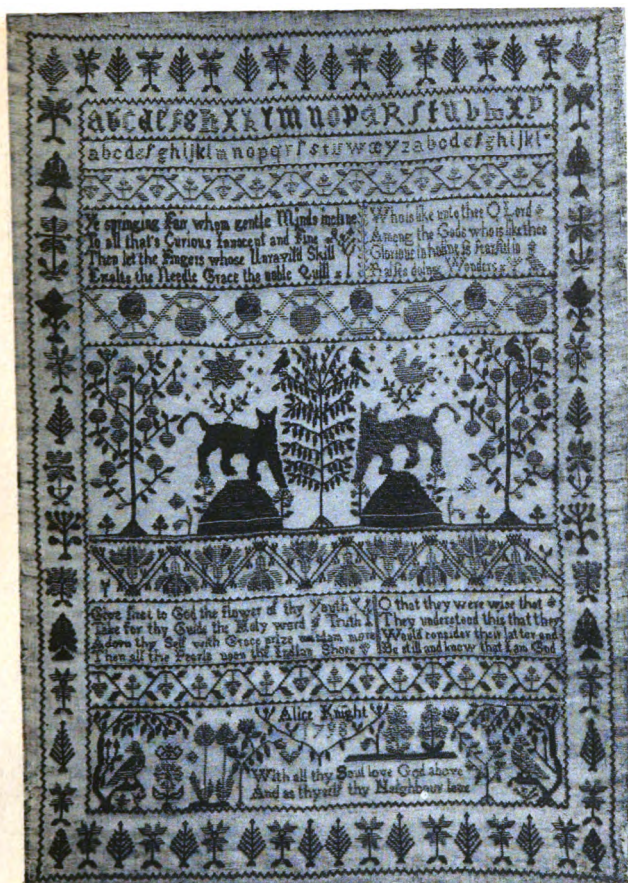 abcdefghXklmnopqRſtubwXP
abcdefghijklmnopqrſstuwxyzabcdefghijkl
Ye springing Fair whom gentle Minds incline
To all that's Curious Innocent and Fine
Then let the Fingers whose Unravild Skill
Exalts the Needle Grace the noble Quill
Who is like unto thee O Lord
Among the Gods who is like thee
Glorious in fearful in
Praises doing Wonders
Give first to God the flower of thy Youth
Take for thy Guide the Holy word of Truth
Adorn thy Self with Grace prize more
Then all the Pearls upon the Indian Shore
O that they were wise that
They understood this that they
Would consider their latter end
Be still and know that I am God
Alice Knight
With all thy Soul love God above
And as thyself thy Neighbour love